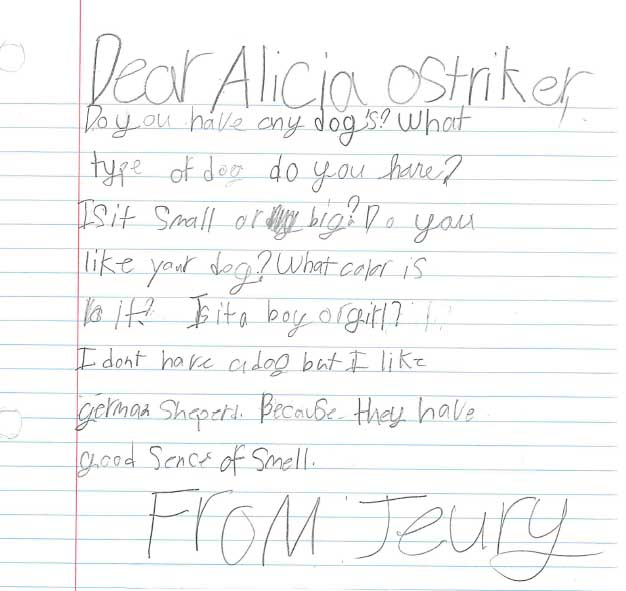 Dear Alicia Ostriker,
Do you have any dog's? What
type of dog do you have?
Is it small or big? Do you
like your dog? What color is
it? Is it a boy or girl?
I dont have a dog but I like
german sheperd. Because they have
good sence of smell.
From Jeury